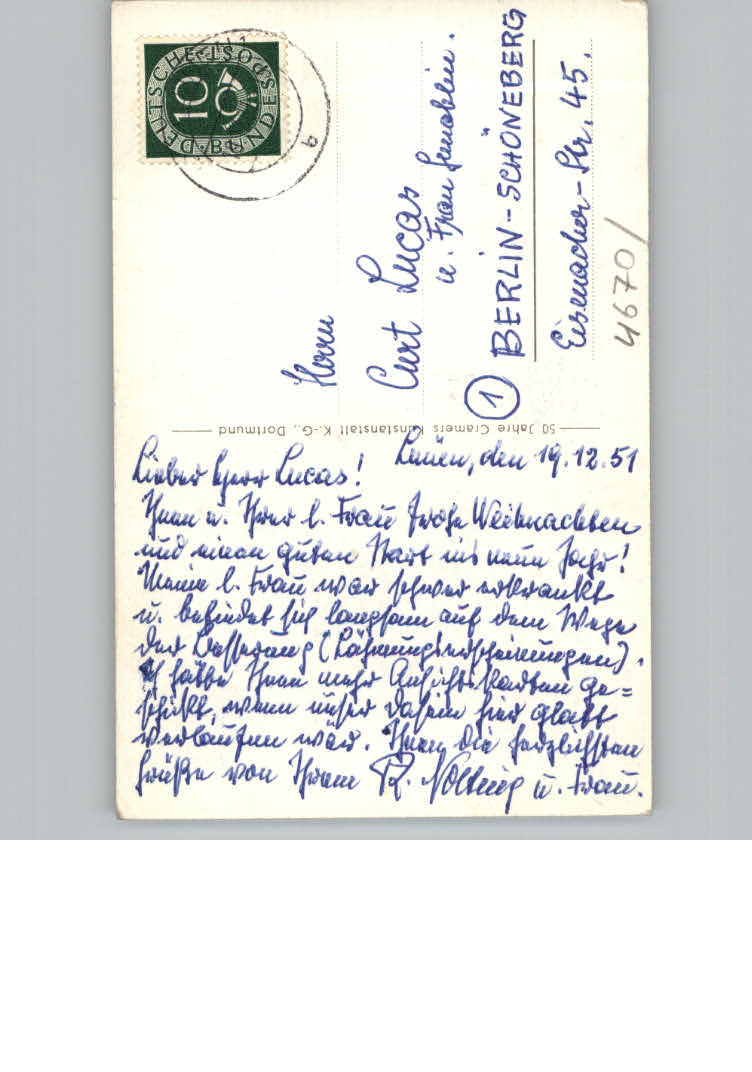 DEUTSCHE BUNDESPOST
10
b
Herrn
Curt Lucas
u. Frau Gemahlin.
① BERLIN-SCHÖNEBERG
Eisenacher-Str. 45.
4670/
50 Jahre Cramers Kunstanstalt K.-G., Dortmund
den 19.12.51
Lieber Herr Lucas!
Ihnen u. Ihrer l. Frau frohe Weihnachten
und einen guten Start ins neue Jahr!
Meine l. Frau war schwer erkrankt
u. befindet sich langsam auf dem Wege
der Besserung (Lähmungserscheinungen).
Ich hätte Ihnen mehr Ansichtskarten ge=
schickt, wenn unser Dasein hier glatt
verlaufen wär. Ihnen die herzlichsten
Grüße von Ihrem R. Nolting u. Frau.